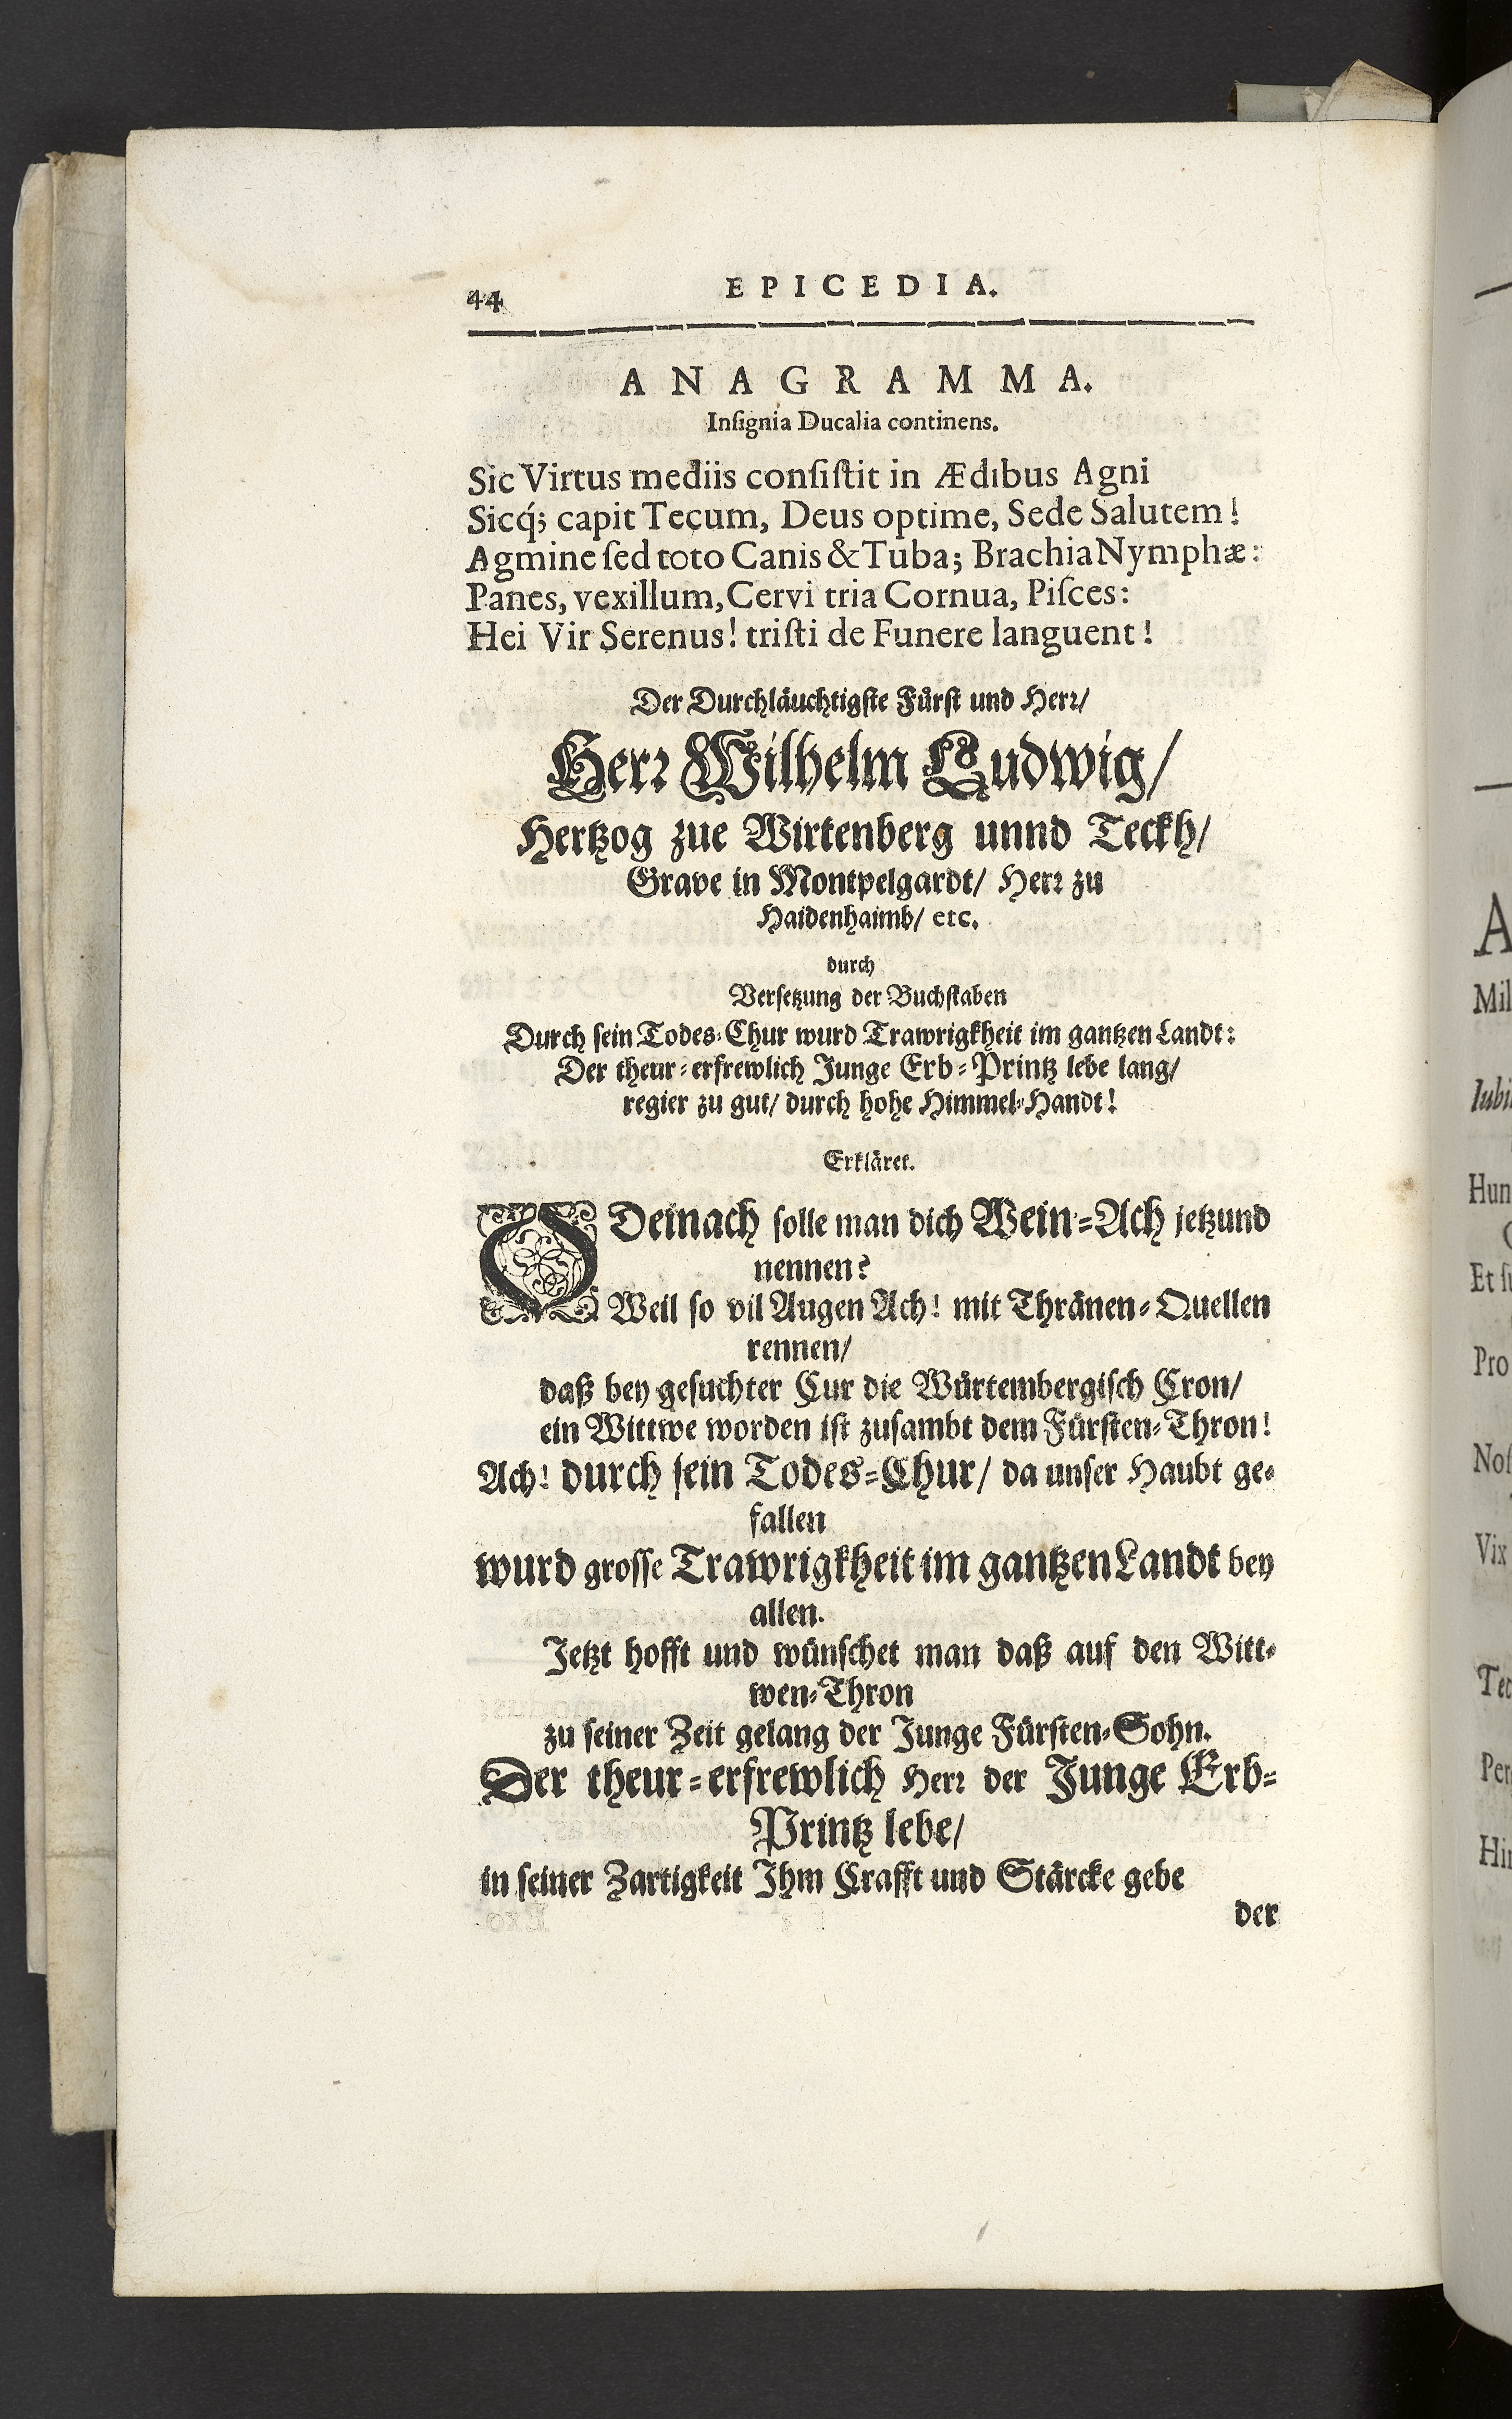 44
EPICEDIA.
ANAGRAMMA.
Inſignia Ducalia continens.
Sic Virtus mediis conſiſtit in Ædibus Agni
Sicq́; capit Tecum, Deus optime, Sede Salutem!
Agmine ſed toto Canis & Tuba; Brachia Nymphæ:
Panes, vexillum, Cervi tria Cornua, Piſces:
Hei Vir Serenus! triſti de Funere languent!
Der Durchläuchtigſte Fürſt und Herꝛ/
Herꝛ Wilhelm Ludwig/
Hertzog zue Wirtenberg unnd Teckh/
Grave in Montpelgardt/ Herꝛ zu
Haidenhaimb/ etc.
durch
Verſetzung der Buchſtaben
Durch ſein Todes-Chur wurd Trawrigkheit im gantzen Landt:
Der theur-erfrewlich Junge Erb-Printz lebe lang/
regier zu gut/ durch hohe Himmel-Handt!
Erkläret.
O Deinach ſolle man dich Wein-Ach jetzund
nennen?
Weil ſo vil Augen Ach! mit Thränen-Quellen
rennen/
daß bey geſuchter Cur die Würtembergiſch Cron/
ein Wittwe worden iſt zuſambt dem Fürſten-Thron!
Ach! durch ſein Todes-Chur/ da unſer Haubt ge-
fallen
wurd groſſe Trawrigkheit im gantzen Landt bey
allen.
Jetzt hofft und wünſchet man daß auf den Witt-
wen-Thron
zu ſeiner Zeit gelang der Junge Fürſten-Sohn.
Der theur-erfrewlich Herꝛ der Junge Erb-
Printz lebe/
in ſeiner Zartigkeit Ihm Crafft und Stärcke gebe
der
A
Mil
Iubi
Hun
Pro
Noſ
Vix
Per